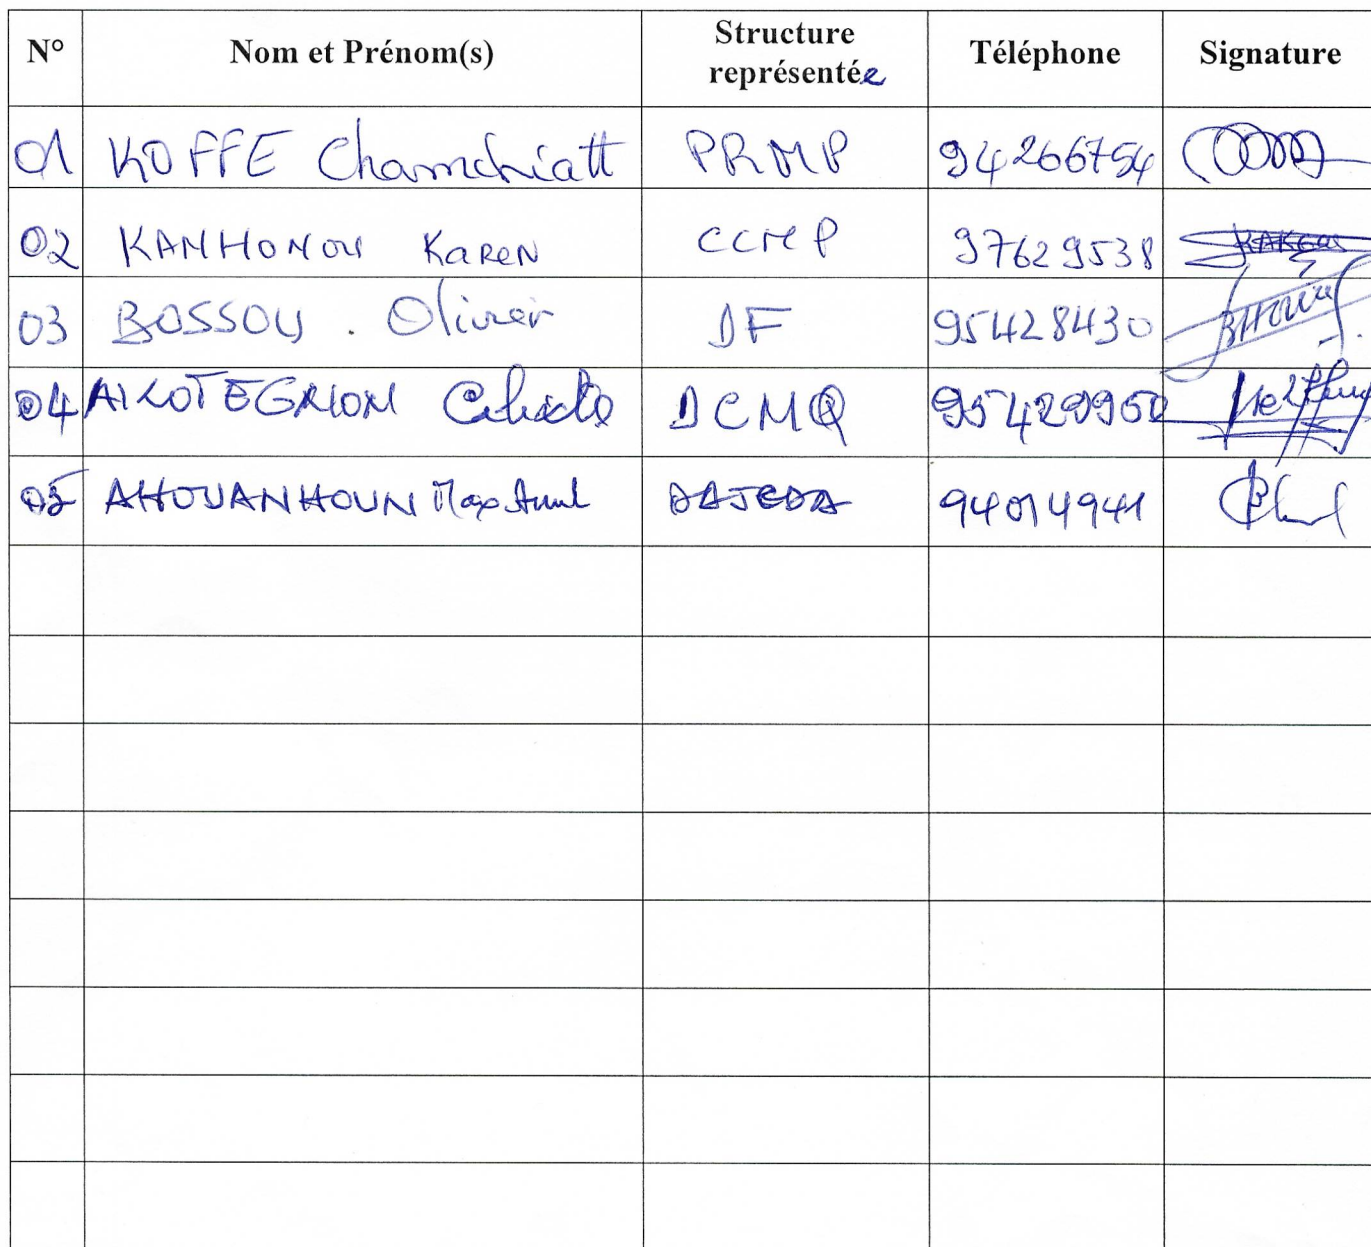 N° Nom et Prénom(s) Structure représentée Téléphone Signature
01 KOFFE Chamchiatt PRMP 94266754
02 KANHONOU Karen CCMP 97629538
03 BOSSOU . Olivier DF 95428430
04 DCMQ 95429950
05 AHOUANHOUN 94014941